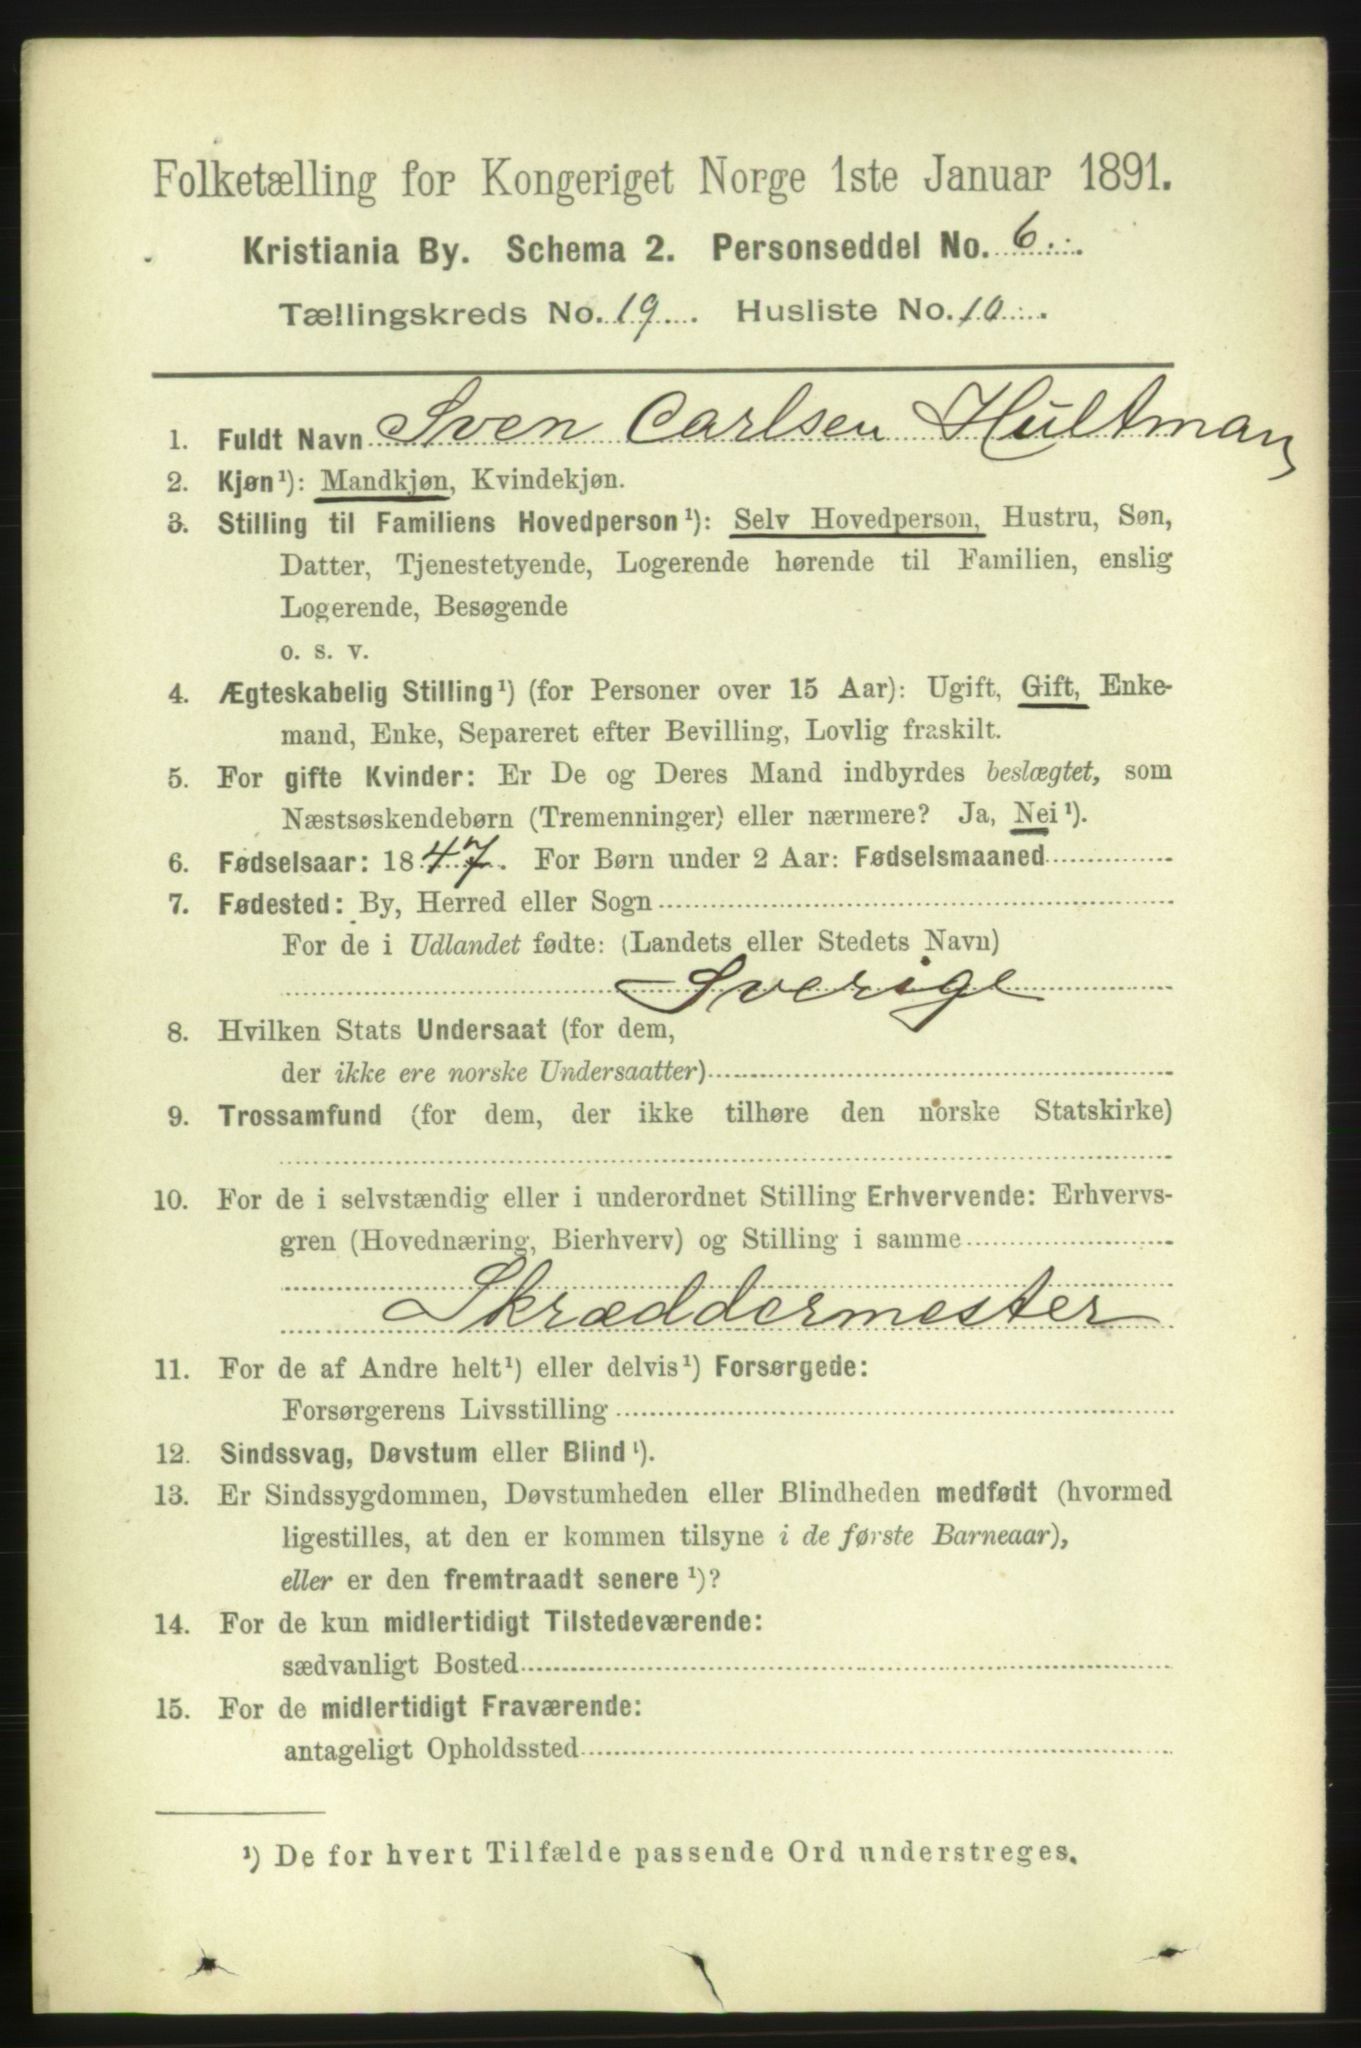 Folketælling for Kongeriget Norge 1ste Januar 1891.
Kristiania By. Schema 2. Personseddel No. 6
Tællingskreds No. 19. Husliste No. 10.
1. Fuldt Navn Sven Carlsen Hultman
2. Kjøn¹): Mandkjøn, Kvindekjøn.
3. Stilling til Familiens Hovedperson¹): Selv Hovedperson, Hustru, Søn,
Datter, Tjenestetyende, Logerende hørende til Familien, enslig
Logerende, Besøgende
o. s. v.
4. Ægteskabelig Stilling¹) (for Personer over 15 Aar): Ugift, Gift, Enke-
mand, Enke, Separeret efter Bevilling, Lovlig fraskilt.
5. For gifte Kvinder: Er De og Deres Mand indbyrdes beslægtet, som
Næstsøskendebørn (Tremenninger) eller nærmere? Ja, Nei¹).
6. Fødselsaar: 1847. For Børn under 2 Aar: Fødselsmaaned
7. Fødested: By, Herred eller Sogn
For de i Udlandet fødte: (Landets eller Stedets Navn)
Sverige
8. Hvilken Stats Undersaat (for dem,
der ikke ere norske Undersaatter)
9. Trossamfund (for dem, der ikke tilhøre den norske Statskirke)
10. For de i selvstændig eller i underordnet Stilling Erhvervende: Erhvervs-
gren (Hovednæring, Bierhverv) og Stilling i samme
Skræddermester
11. For de af Andre helt¹) eller delvis¹) Forsørgede:
Forsørgerens Livsstilling
12. Sindssvag, Døvstum eller Blind¹).
13. Er Sindssygdommen, Døvstumheden eller Blindheden medfødt (hvormed
ligestilles, at den er kommen tilsyne i de første Barneaar),
eller er den fremtraadt senere¹)?
14. For de kun midlertidigt Tilstedeværende:
sædvanligt Bosted
15. For de midlertidigt Fraværende:
antageligt Opholdssted
¹) De for hvert Tilfælde passende Ord understreges.